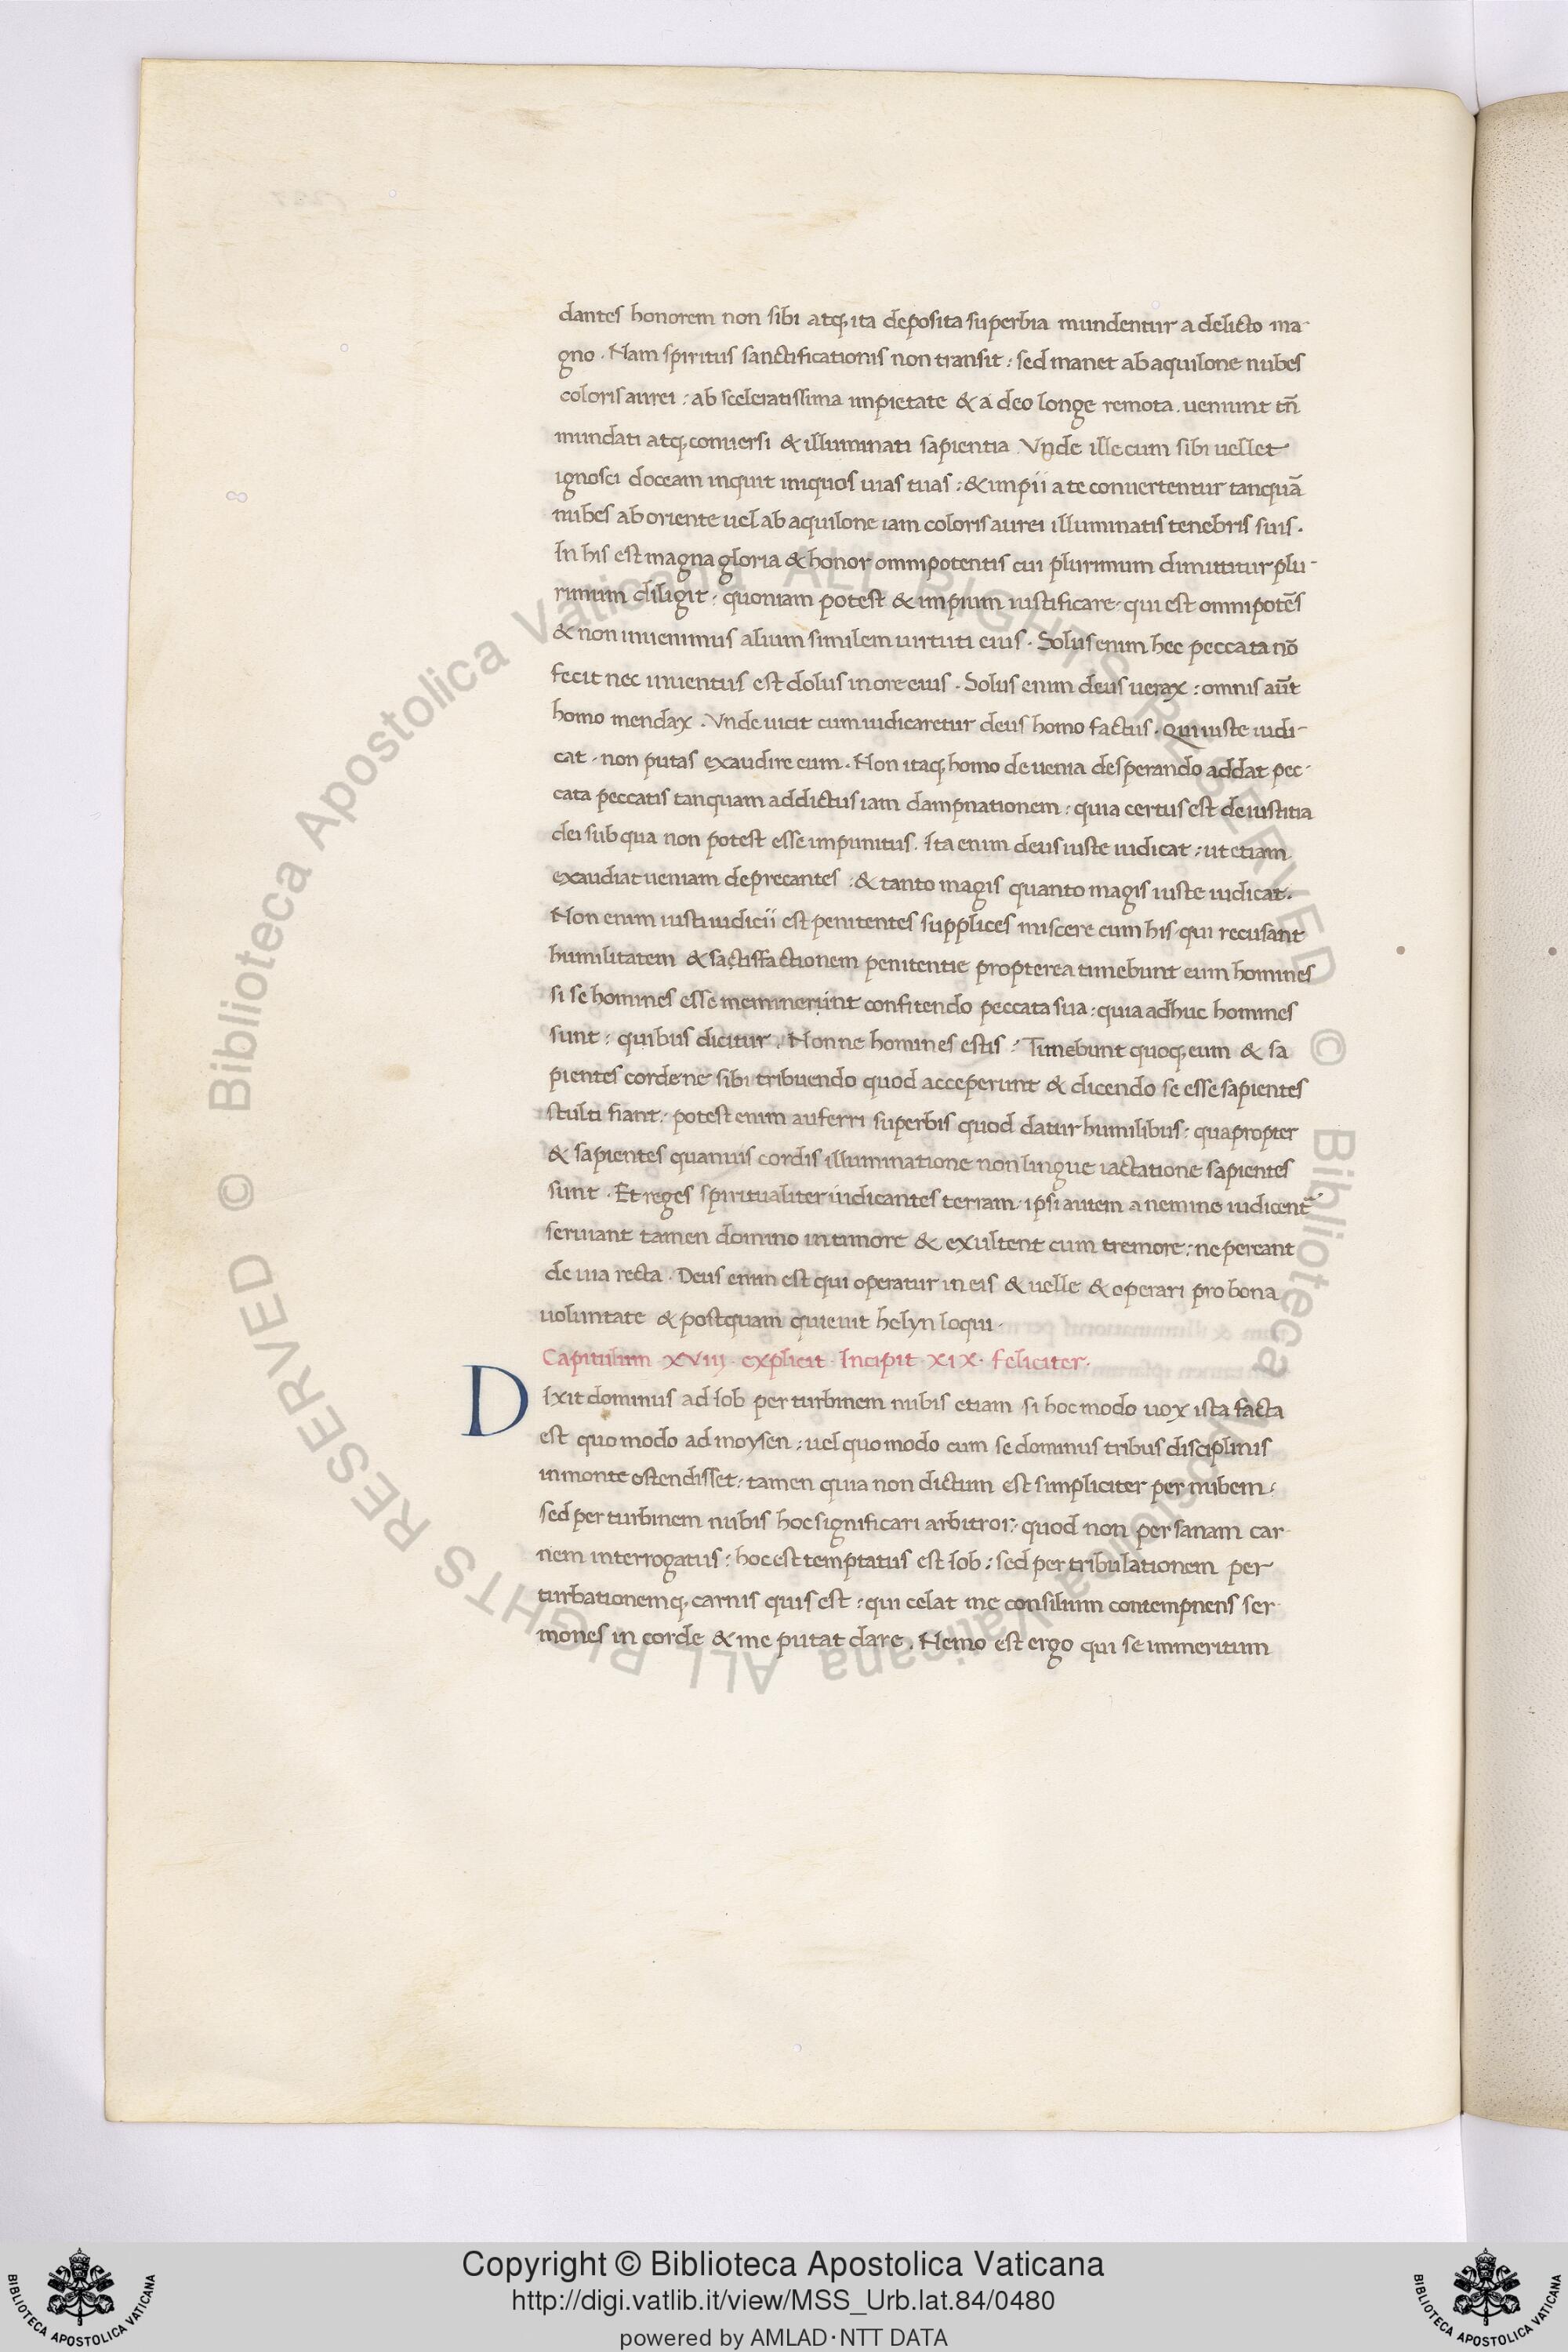 dantes honorem non sibi atq; ita deposita superbia mundentur a delicto ma-
gno. Nam spiritus sanctificationis non transit: sed manet ab aquilone nubes
coloris aurei: ab sceleratissima impietate & á deo longe remota. ueniunt tn̄
mundati atq; conuersi & illuminati sapientia. Vnde ille cum sibi uellet
ignosci doceam inquit iniquos uias tuas: & impii a te conuertentur tanquā
nubes ab oriente uel ab aquilone iam coloris aurei illuminatis tenebris suis.
In his est magna gloria & honor omnipotentis cui plurimum dimittitur plu-
rimum diligit: quoniam potest & impium iustificare: qui est omnipotēs
& non inuenimus alium similem uirtuti eius. Solus enim hec peccata nō
fecit nec inuentus est dolus in ore eius. Solus enim deus uerax: omnis aūt
homo mendax. Vnde uicit cum iudicaretur deus homo factus. Qui iuste iudi-
cat. non putas exaudire eum. Non itaq; homo de uenia desperando addat pec-
cata peccatis tanquam addictus iam dampnationem: quia certus est de iustitia
dei sub qua non potest esse impunitus. Ita enim deus iuste iudicat: ut etiam
exaudiat ueniam deprecantes: & tanto magis quanto magis iuste iudicat.
Non enim iusti iudicii est penitentes supplices miscere cum his qui recusant
humilitatem & sactisfactionem penitentie propterea timebunt eum homines
si se homines esse meminerunt confitendo peccata sua: quia adhuc homines
sunt: quibus dicitur. Nonne homines estis? Timebunt quoq; eum & sa
pientes corde ne sibi tribuendo quod acceperunt & dicendo se esse sapientes
stulti fiant: potest enim auferri superbis quod datur humilibus: quapropter
& sapientes quamuis cordis illuminatione non lingue iactatione sapientes
sunt. Et reges spiritualiter iudicantes terram: ipsi autem a nemine iudicent̄
seruiant tamen domino in timore & exultent cum tremore: ne pereant
de uia recta. Deus enim est qui operatur in eis & uelle & operari pro bona
uoluntate & postquam quieuit helyn loqui.
Capitulum XVIIJ. explicit. Incipit XIX. feliciter.
Dixit dominus ad Iob per turbinem nubis etiam si hoc modo uox ista facta
est quo modo ad moysen: uel quo modo cum se dominus tribus disciplinis
in monte ostendisset: tamen quia non dictum est simpliciter per nubem:
sed per turbinem nubis hoc significari arbitror: quod non per sanam car-
nem interrogatus: hoc est temptatus est Iob: sed per tribulationem per
turbationemq; carnis quis est: qui celat me consilium contempnens ser-
mones in corde & me putat clare. Nemo est ergo qui se immeritum
© Biblioteca Apostolica Vaticana ALL RIGHTS RESERVED © Biblioteca Apostolica Vaticana ALL RIGHTS RESERVED
Copyright © Biblioteca Apostolica Vaticana
http://digi.vatlib.it/view/MSS_Urb.lat.84/0480
powered by AMLAD·NTT DATA
BIBLIOTECA APOSTOLICA VATICANA
BIBLIOTECA APOSTOLICA VATICANA